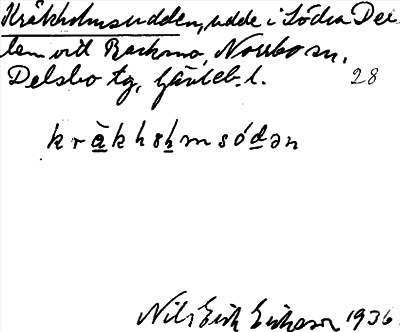 Kråkholmsudden, udde i Södra Del-
len vid Backmo, Norrbo sn,
Delsbo tg, Gävleb. l. 28
kråkhshmsódən
Nils Erik Eriksson 1936